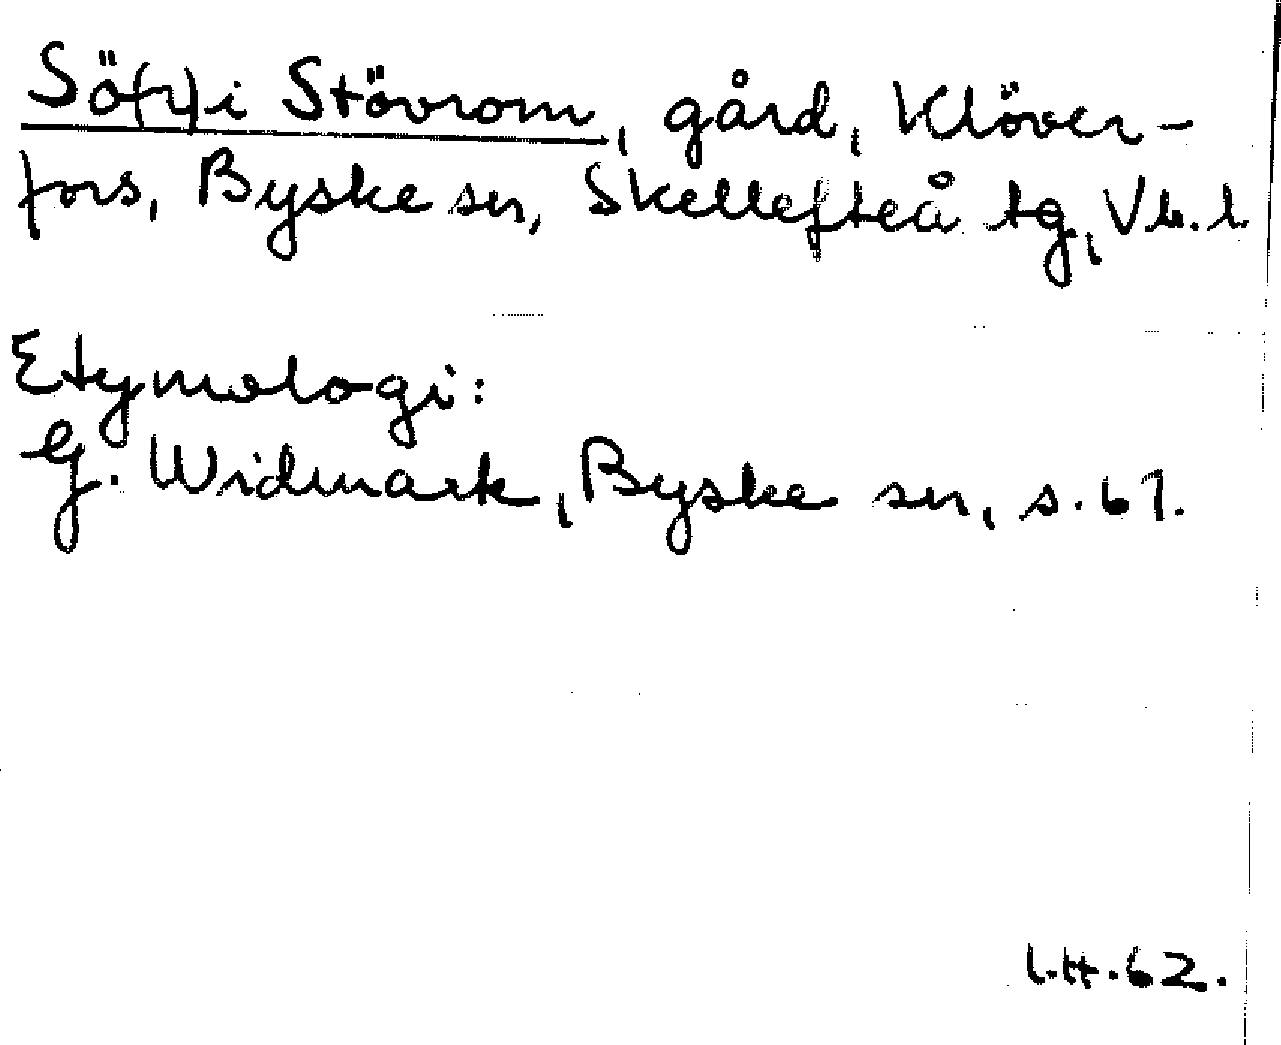 Sö(r)i Stövrom, gård, Klöver-
fors, Byske sn, Skellefteå tg, Vb. l
Etymologi:
G. Widmark, Byske sn, s. 61.
I.H. 62.